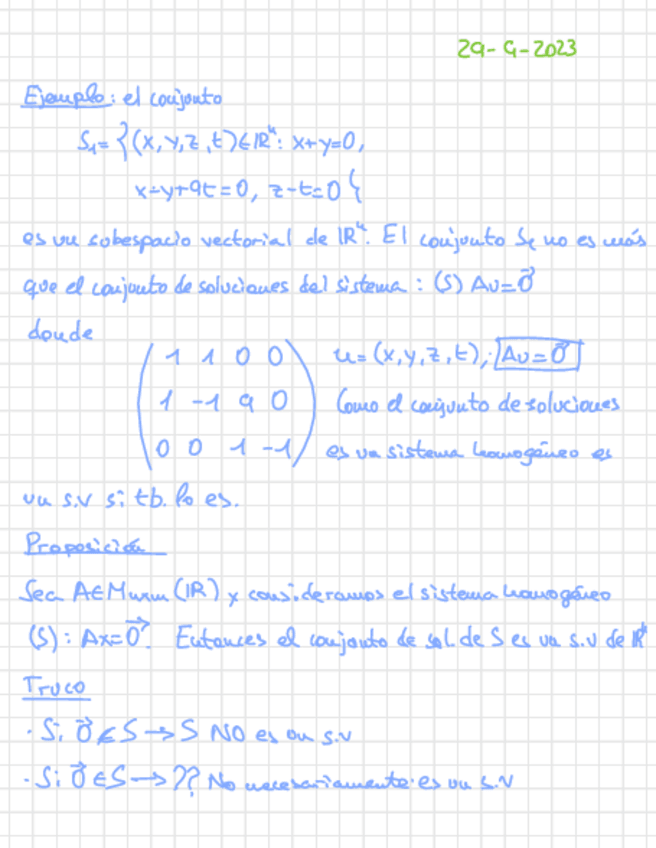 29-9-2023
Ejemplo: el conjunto
S₁= {(x,y,z,t)∈ℝ⁴: x+y=0,
x-y+9t=0, z-t=0}
es un subespacio vectorial de ℝ⁴. El conjunto S₁ no es más
que el conjunto de soluciones del sistema: (S) Au=0⃗
donde
( 1 1 0 0 ) u=(x,y,z,t), Au=0⃗
( 1 -1 9 0 ) Como el conjunto de soluciones
( 0 0 1 -1 ) es un sistema homogéneo es
un s.v si tb. lo es.
Proposición
Sea A∈Mmxn(ℝ) y consideramos el sistema homogéneo
(S): Ax=0⃗. Entonces el conjunto de sol. de S es un s.v de ℝⁿ
Truco
· Si 0⃗ ∉ S → S NO es un s.v
· Si 0⃗ ∈ S → ?? No necesariamente es un s.v